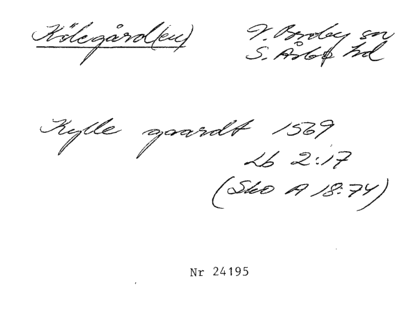 Kölegård(en) V. Broby sn
S. Åsbo hd
Kylle gaardt 1569
Lb 2:17
(Sko A 18:74)
Nr 24195